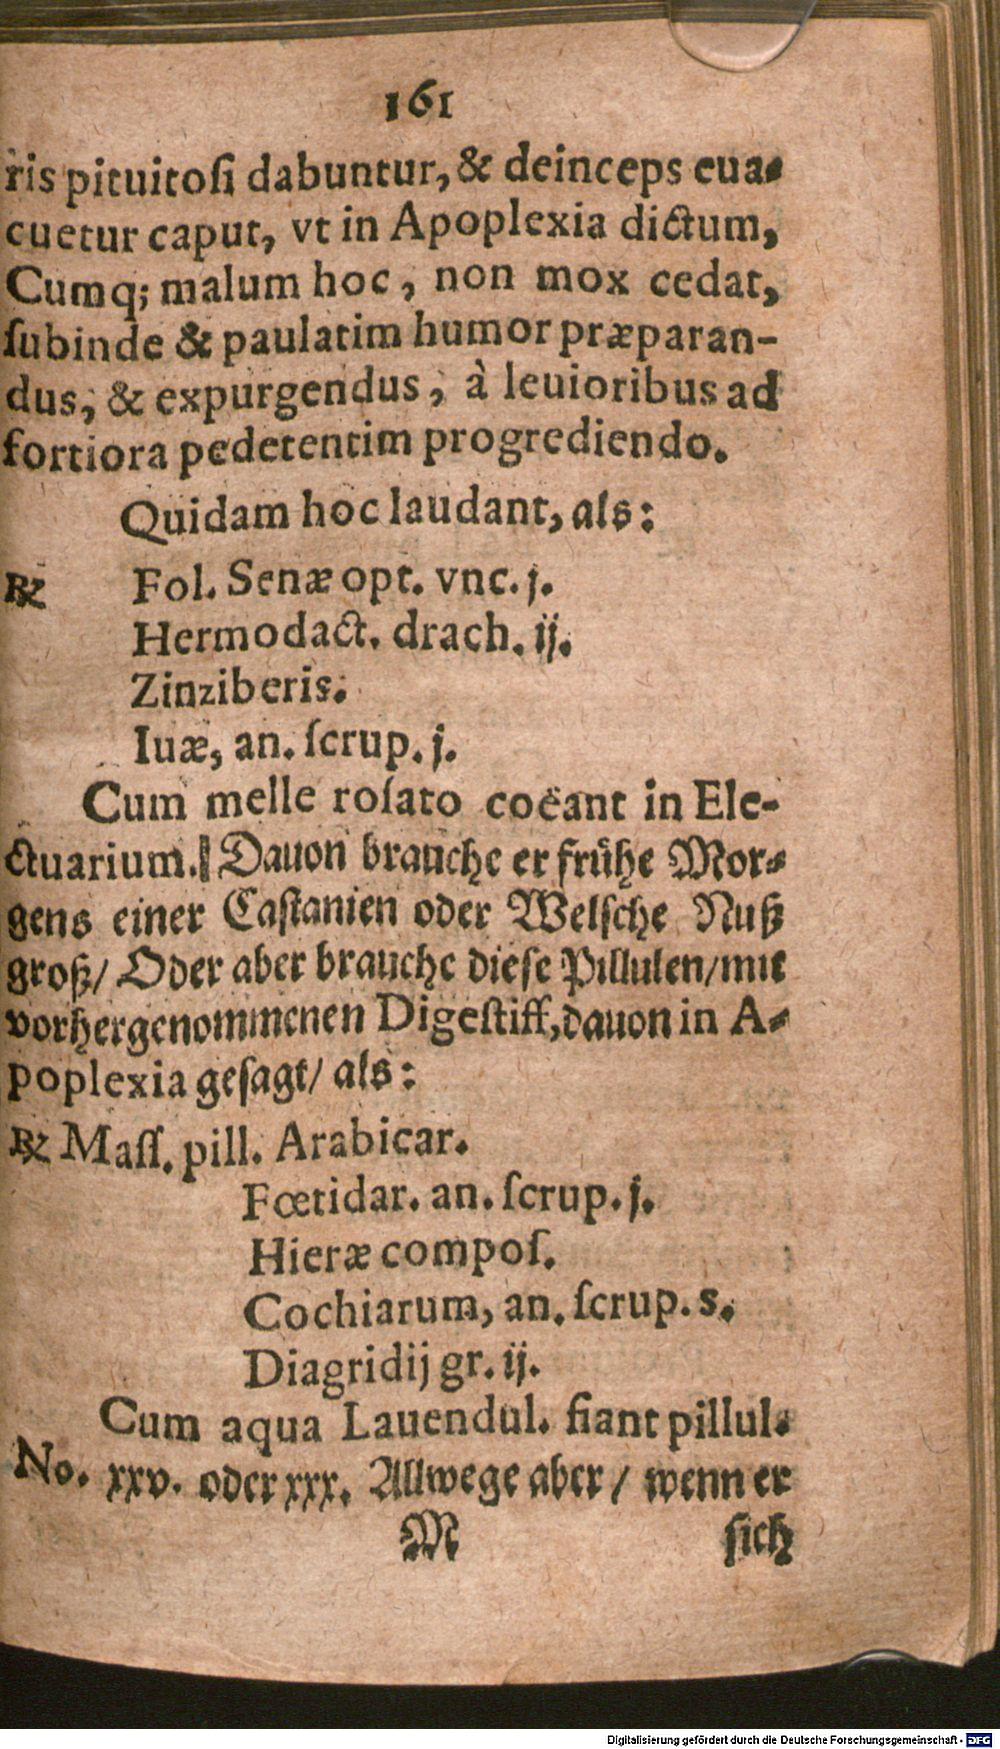 161
ris pituitosi dabuntur, & deinceps eua-
cuetur caput, vt in Apoplexia dictum,
Cumq; malum hoc, non mox cedat,
ſubinde & paulatim humor præparan-
dus, & expurgendus, à leuioribus ad
fortiora pedetentim progrediendo.
Quidam hoc laudant, als:
℞ Fol. Senæ opt. vnc. j.
Hermodact. drach. ij.
Zinziberis.
Iuæ, an. ſcrup. j.
Cum melle roſato coëant in Ele-
ctuarium. Dauon brauche er frühe Mor-
gens einer Caſtanien oder Welſche Nuß
groß/ Oder aber brauche dieſe Pillulen/ mit
vorhergenommenen Digeſtiff, dauon in A-
poplexia geſagt/ als:
℞ Maſſ. pill. Arabicar.
Fœtidar. an. ſcrup. j.
Hieræ compoſ.
Cochiarum, an. ſcrup. s.
Diagridij gr. ij.
Cum aqua Lauendul. fiant pillul.
No. xxv. oder xxx. Allwege aber / wenn er
M ſich
Digitalisierung gefördert durch die Deutsche Forschungsgemeinschaft - DFG